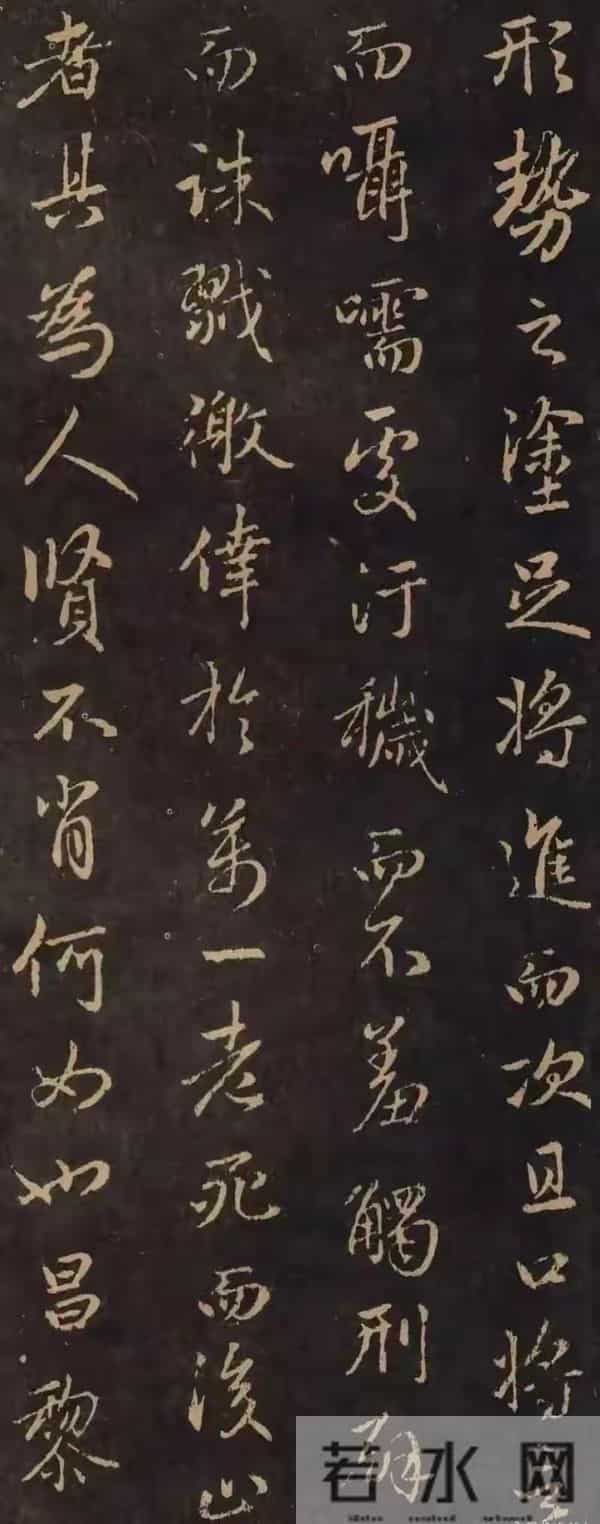 形勢之塗足將進而次且口將言
而囁嚅處汙穢而不羞觸刑辟
而誅戮徼倖於萬一老死而後止
者其為人賢不肖何如也昌黎
若水网